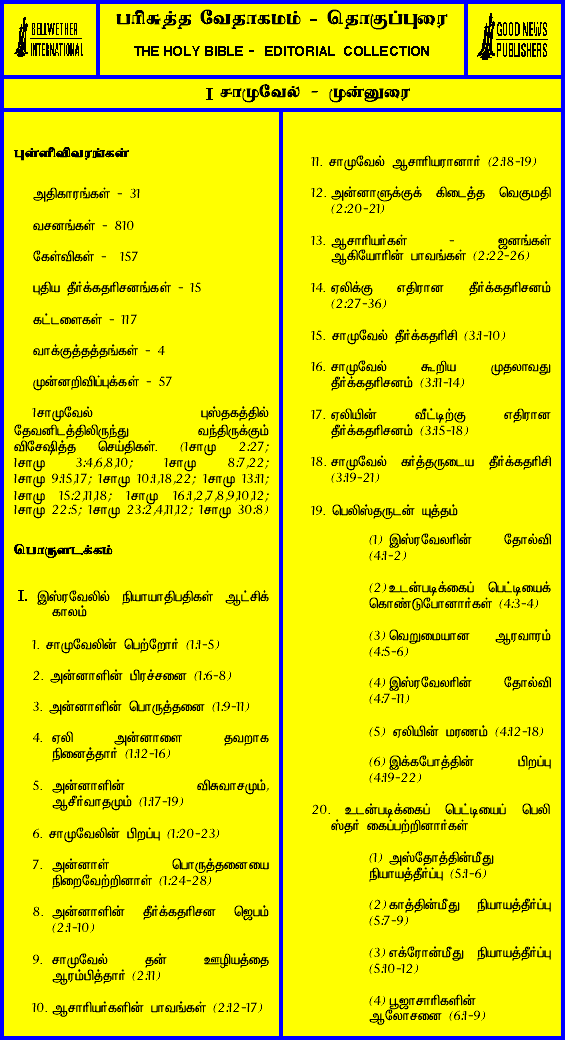 BELLWETHER
INTERNATIONAL
பரிசுத்த வேதாகமம் - தொகுப்புரை
THE HOLY BIBLE - EDITORIAL COLLECTION
GOOD NEWS
PUBLISHERS
I சாமுவேல் - முன்னுரை
புள்ளிவிவரங்கள்
அதிகாரங்கள் - 31
வசனங்கள் - 810
கேள்விகள் - 157
புதிய தீர்க்கதரிசனங்கள் - 15
கட்டளைகள் - 117
வாக்குத்தத்தங்கள் - 4
முன்னறிவிப்புக்கள் - 57
1சாமுவேல் புஸ்தகத்தில்
தேவனிடத்திலிருந்து வந்திருக்கும்
விசேஷித்த செய்திகள். (1சாமு 2:27;
1சாமு 3:4,6,8,10; 1சாமு 8:7,22;
1சாமு 9:15,17; 1சாமு 10:1,18,22; 1சாமு 13:11;
1சாமு 15:2,11,18; 1சாமு 16:1,2,7,8,9,10,12;
1சாமு 22:5; 1சாமு 23:2,4,11,12; 1சாமு 30:8)
பொருளடக்கம்
I. இஸ்ரவேலில் நியாயாதிபதிகள் ஆட்சிக்
காலம்
1. சாமுவேலின் பெற்றோர் (1:1-5)
2. அன்னாளின் பிரச்சனை (1:6-8)
3. அன்னாளின் பொருத்தனை (1:9-11)
4. ஏலி அன்னாளை தவறாக
நினைத்தார் (1:12-16)
5. அன்னாளின் விசுவாசமும்,
ஆசீர்வாதமும் (1:17-19)
6. சாமுவேலின் பிறப்பு (1:20-23)
7. அன்னாள் பொருத்தனையை
நிறைவேற்றினாள் (1:24-28)
8. அன்னாளின் தீர்க்கதரிசன ஜெபம்
(2:1-10)
9. சாமுவேல் தன் ஊழியத்தை
ஆரம்பித்தார் (2:11)
10. ஆசாரியர்களின் பாவங்கள் (2:12-17)
11. சாமுவேல் ஆசாரியரானார் (2:18-19)
12. அன்னாளுக்குக் கிடைத்த வெகுமதி
(2:20-21)
13. ஆசாரியர்கள் - ஜனங்கள்
ஆகியோரின் பாவங்கள் (2:22-26)
14. ஏலிக்கு எதிரான தீர்க்கதரிசனம்
(2:27-36)
15. சாமுவேல் தீர்க்கதரிசி (3:1-10)
16. சாமுவேல் கூறிய முதலாவது
தீர்க்கதரிசனம் (3:11-14)
17. ஏலியின் வீட்டிற்கு எதிரான
தீர்க்கதரிசனம் (3:15-18)
18. சாமுவேல் கர்த்தருடைய தீர்க்கதரிசி
(3:19-21)
19. பெலிஸ்தருடன் யுத்தம்
(1) இஸ்ரவேலரின் தோல்வி
(4:1-2)
(2) உடன்படிக்கைப் பெட்டியைக்
கொண்டுபோனார்கள் (4:3-4)
(3) வெறுமையான ஆரவாரம்
(4:5-6)
(4) இஸ்ரவேலரின் தோல்வி
(4:7-11)
(5) ஏலியின் மரணம் (4:12-18)
(6) இக்கபோத்தின் பிறப்பு
(4:19-22)
20. உடன்படிக்கைப் பெட்டியைப் பெலி
ஸ்தர் கைப்பற்றினார்கள்
(1) அஸ்தோத்தின்மீது
நியாயத்தீர்ப்பு (5:1-6)
(2) காத்தின்மீது நியாயத்தீர்ப்பு
(5:7-9)
(3) எக்ரோன்மீது நியாயத்தீர்ப்பு
(5:10-12)
(4) பூஜாசாரிகளின்
ஆலோசனை (6:1-9)